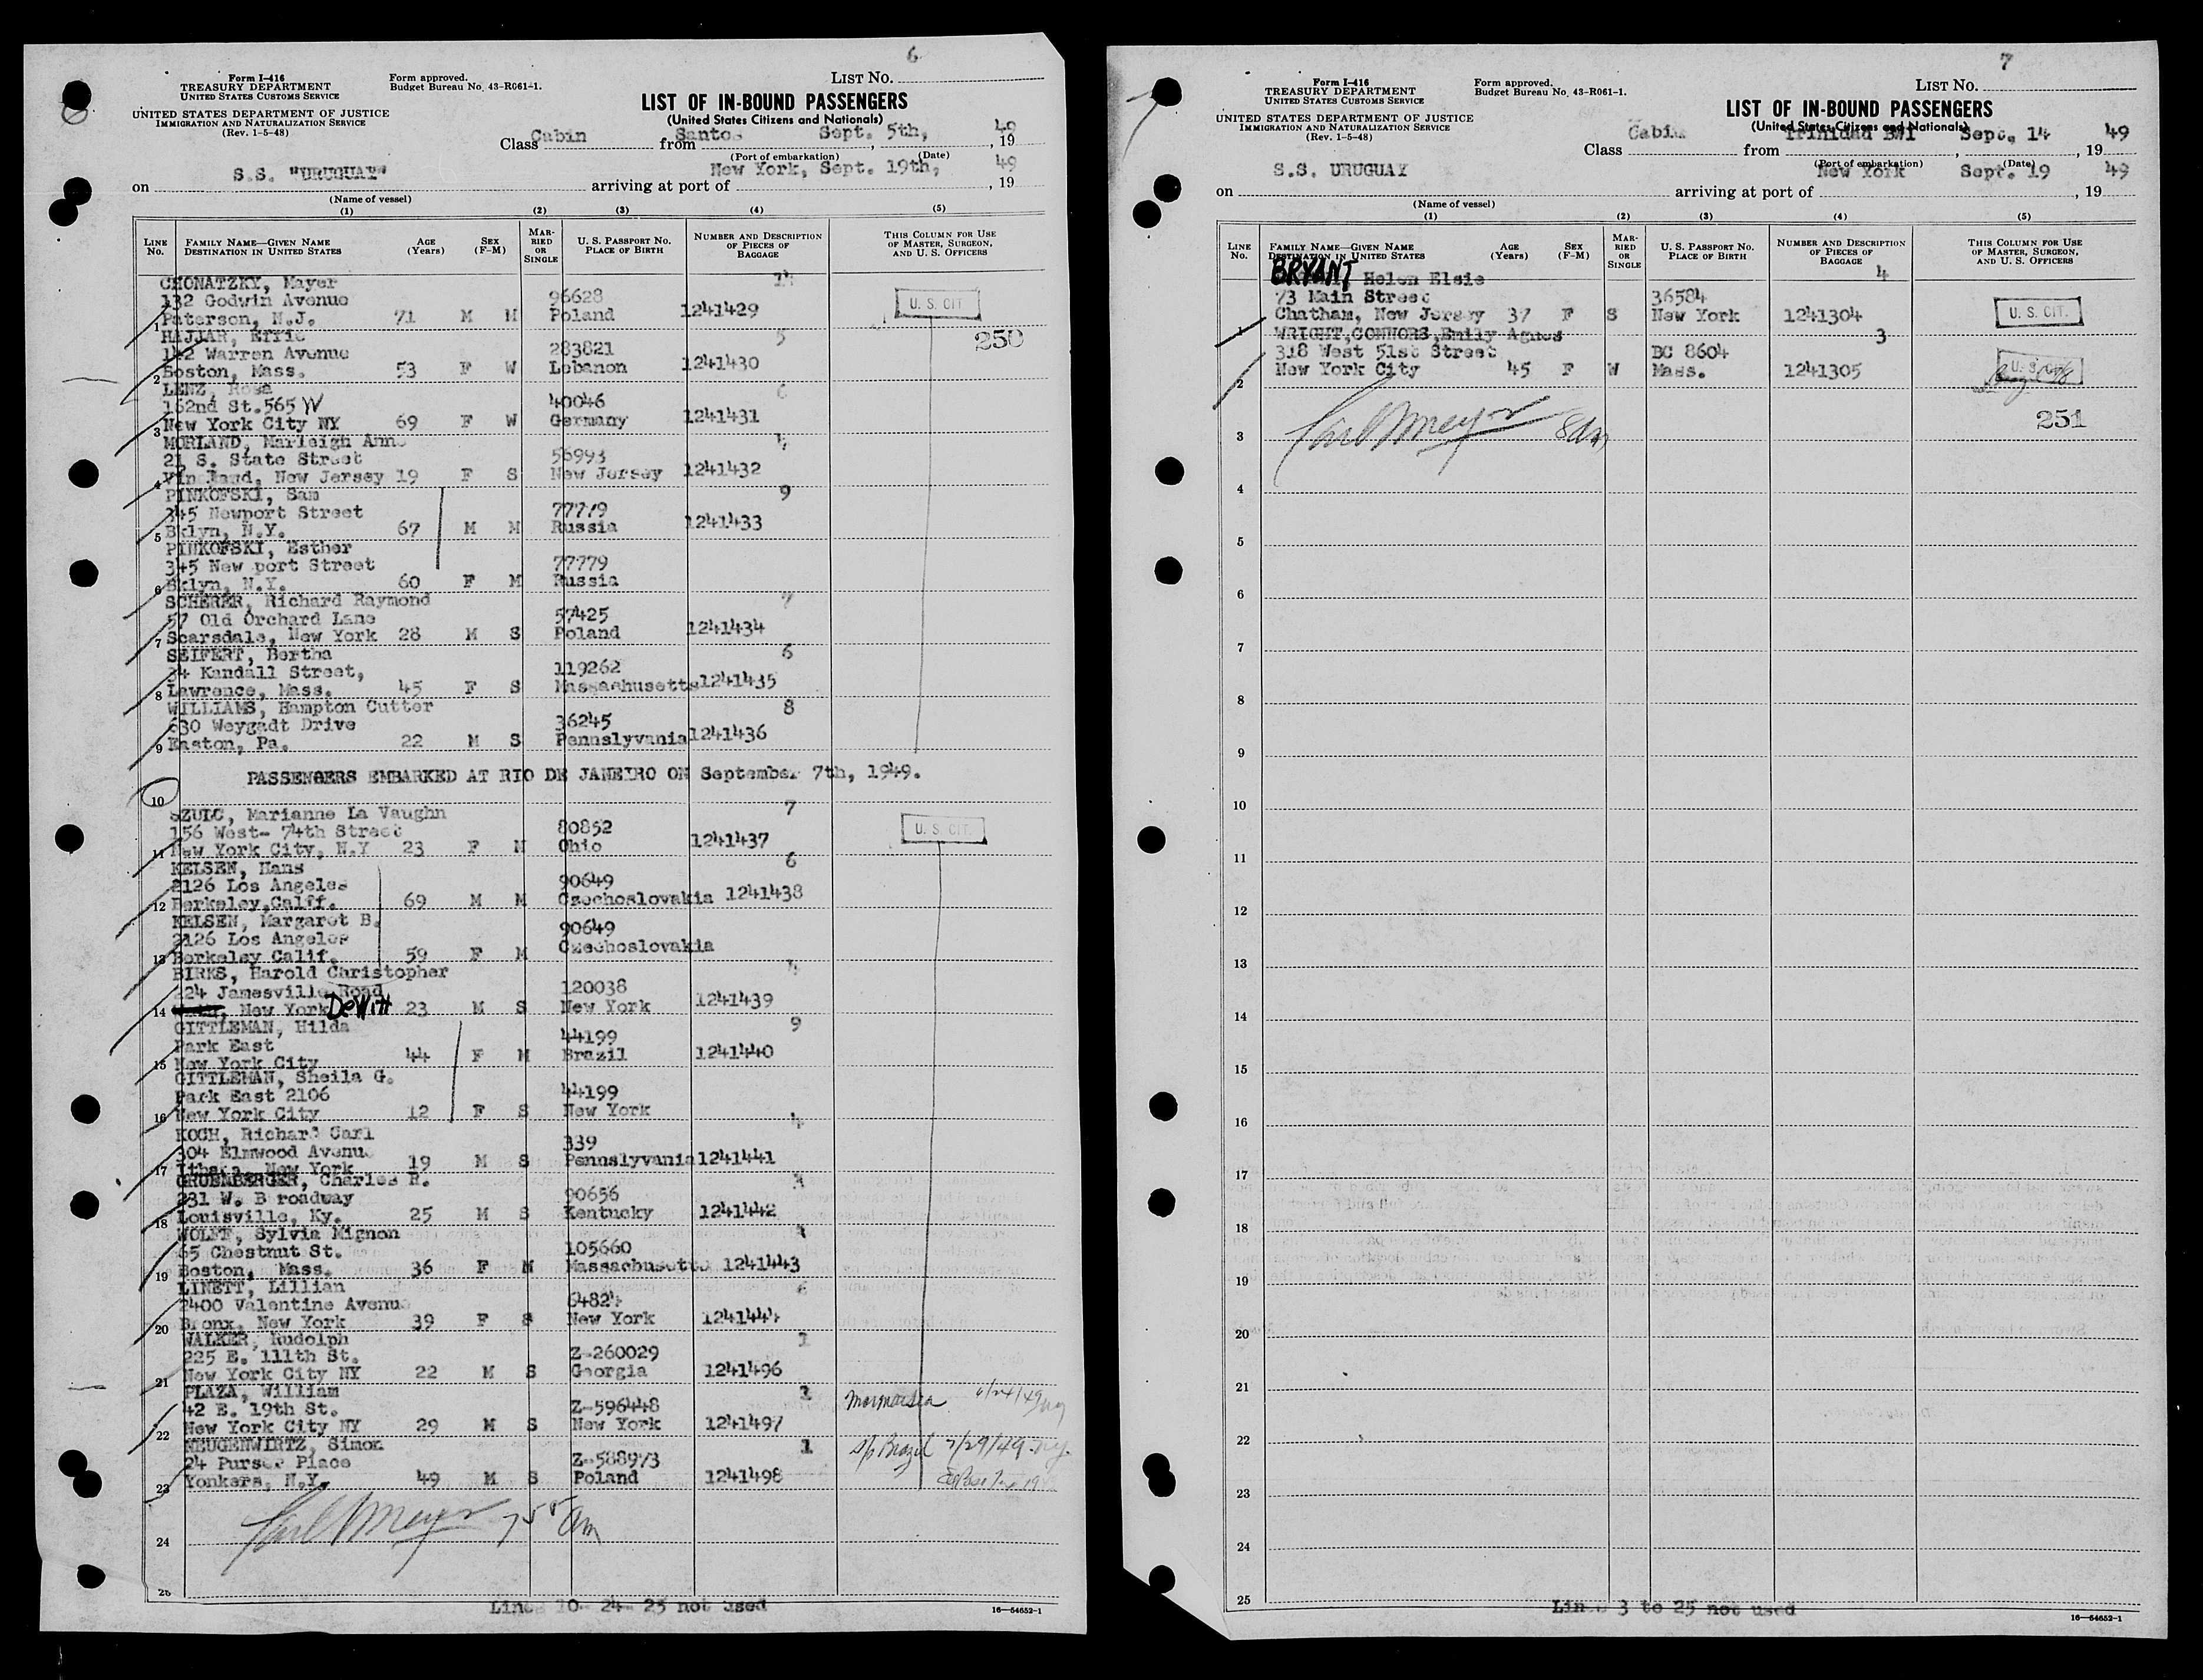 6
Form I-416
TREASURY DEPARTMENT
UNITED STATES CUSTOMS SERVICE
Form approved.
Budget Bureau No. 43-R061-1.
LIST NO.
UNITED STATES DEPARTMENT OF JUSTICE
IMMIGRATION AND NATURALIZATION SERVICE
(Rev. 1-5-48)
LIST OF IN-BOUND PASSENGERS
(United States Citizens and Nationals)
Class Cabin from Santos Sept. 5th, , 19 49
(Port of embarkation) (Date)
on S.S. "URUGUAY" arriving at port of New York, Sept. 19th, , 19 49
(Name of vessel)
(1) (2) (3) (4) (5)
LINE NO. FAMILY NAME—GIVEN NAME DESTINATION IN UNITED STATES AGE (Years) SEX (F-M) MARRIED OR SINGLE U. S. PASSPORT NO. PLACE OF BIRTH NUMBER AND DESCRIPTION OF PIECES OF BAGGAGE THIS COLUMN FOR USE OF MASTER, SURGEON, AND U. S. OFFICERS
CHONATZKY, Mayer 14
132 Godwin Avenue 96628 U. S. CIT
1 Paterson, N.J. 71 M M Poland 1241429
HAJJAR, Effie 5 250
142 Warren Avenue 283821
2 Boston, Mass. 53 F W Lebanon 1241430
LENZ, Rosa 6
162nd St. 565 W 40046
3 New York City NY 69 F W Germany 1241431
MORLAND, Marleigh Anne 4
21 S. State Street 56993
4 Vineland, New Jersey 19 F S New Jersey 1241432
PINKOFSKI, Sam 9
345 Newport Street 77779
5 Bklyn, N.Y. 67 M M Russia 1241433
PINKOFSKI, Esther
345 New port Street 77779
6 Bklyn, N.Y. 60 F M Russia
SCHERER, Richard Raymond 7
57 Old Orchard Lane 57425
7 Scarsdale, New York 28 M S Poland 1241434
SEIFERT, Bertha 6
34 Kendall Street, 119262
8 Lawrence, Mass. 45 F S Massachusetts 1241435
WILLIAMS, Hampton Cutter 8
630 Weygadt Drive 36245
9 Easton, Pa. 22 M S Pennslyvania 1241436
PASSENGERS EMBARKED AT RIO DE JANEIRO ON September 7th, 1949.
10
SZULC, Marianne La Vaughn 7
156 West- 74th Street 80852 U. S. CIT.
11 New York City, N.Y 23 F M Ohio 1241437
KELSEN, Hans 6
2126 Los Angeles 90649
12 Berkeley,Calff. 69 M M Czechoslovakia 1241438
KELSEN, Margaret B.
2126 Los Angeles 90649
13 Berkeley Calif. 59 F M Czechoslovakia
BIRKS, Harold Christopher 4
224 Jamesville Road 120038
14 New York DeWitt 23 M S New York 1241439
GITTLEMAN, Hilda 9
Park East 44199
15 New York City 44 F M Brazil 1241440
GITTLEMAN, Sheila G.
Park East 2106 44199
16 New York City 12 F S New York
KOCH, Richard Carl 4
304 Elmwood Avenue 339
17 Ithaca, New York 19 M S Pennslyvania 1241441
GRUENBERGER, Charles R. 3
231 W. B roadway 90656
18 Louisville, Ky. 25 M S Kentucky 1241442
WOLFF, Sylvia Mignon
65 Chestnut St. 105660
19 Boston, Mass. 36 F M Massachusetts 1241443
LINETT, Lillian 6
2400 Valentine Avenue 64824
20 Bronx, New York 39 F S New York 1241444
WALKER, Rudolph 1
225 E. 111th St. Z-260029
21 New York City NY 22 M S Georgia 1241496
PLAZA, William 1
42 E. 19th St. Z-596448
22 New York City NY 29 M S New York 1241497
NEUGENWIRTZ, Simon 1 s/s Brazil 7/29/49
24 Purser Place Z-588973
23 Yonkers, N.Y. 49 M S Poland 1241498
Carl Meyer 7 55 am
24
25
Lines 10 24 25 not used
16—54652-1
7
Form I-416
TREASURY DEPARTMENT
UNITED STATES CUSTOMS SERVICE
Form approved.
Budget Bureau No. 43-R061-1.
LIST NO.
UNITED STATES DEPARTMENT OF JUSTICE
IMMIGRATION AND NATURALIZATION SERVICE
(Rev. 1-5-48)
LIST OF IN-BOUND PASSENGERS
(United States Citizens and Nationals)
Class Cabin from Trinidad BWI Sept. 14 , 19 49
(Port of embarkation) (Date)
on S.S. URUGUAY arriving at port of New York Sept. 19 , 19 49
(Name of vessel)
(1) (2) (3) (4) (5)
LINE NO. FAMILY NAME—GIVEN NAME DESTINATION IN UNITED STATES AGE (Years) SEX (F-M) MARRIED OR SINGLE U. S. PASSPORT NO. PLACE OF BIRTH NUMBER AND DESCRIPTION OF PIECES OF BAGGAGE THIS COLUMN FOR USE OF MASTER, SURGEON, AND U. S. OFFICERS
BRYANT Helen Elsie 4
73 Main Street 36584
1 Chatham, New Jersey 37 F S New York 1241304 U. S. CIT.
WRIGHT,CONNORS,Emily Agnes 3
318 West 51st Street BC 8604
2 New York City 45 F W Mass. 1241305 U. S. CIT
251
3 Carl Meyer 8 am
4
5
6
7
8
9
10
11
12
13
14
15
16
17
18
19
20
21
22
23
24
25
Lines 3 to 25 not used
16—54652-1